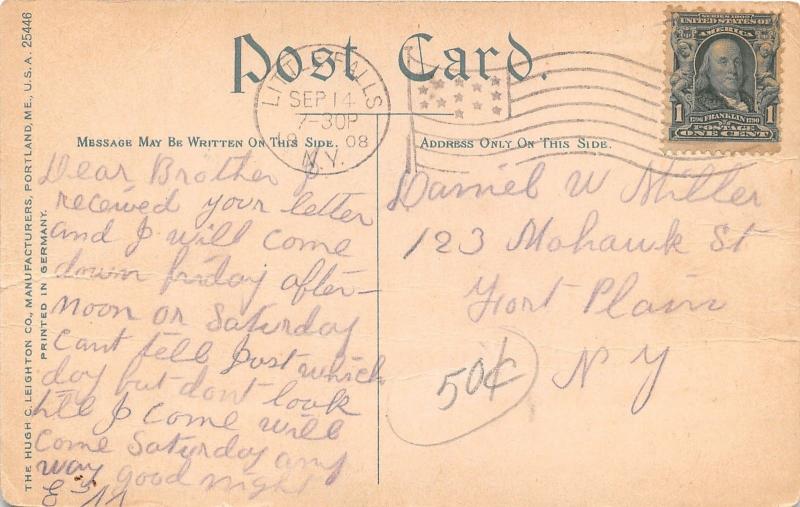 Post Card.
LITTLE FALLS
SEP 14
7-30P
08
N.Y.
SERIES 1902
UNITED STATES OF
AMERICA
1 1790 FRANKLIN 1790 1
POSTAGE
ONE CENT
MESSAGE MAY BE WRITTEN ON THIS SIDE.
ADDRESS ONLY ON THIS SIDE.
THE HUGH C. LEIGHTON CO., MANUFACTURERS, PORTLAND, ME., U.S.A. 25446
PRINTED IN GERMANY.
Dear Brother I
received your letter
and I will come
down friday after-
noon or Saturday
Cant tell Just which
day but dont look
till I come will
come Saturday any
way good night
Daniel W Miller
123 Mohawk St
Fort Plain
N Y
50¢